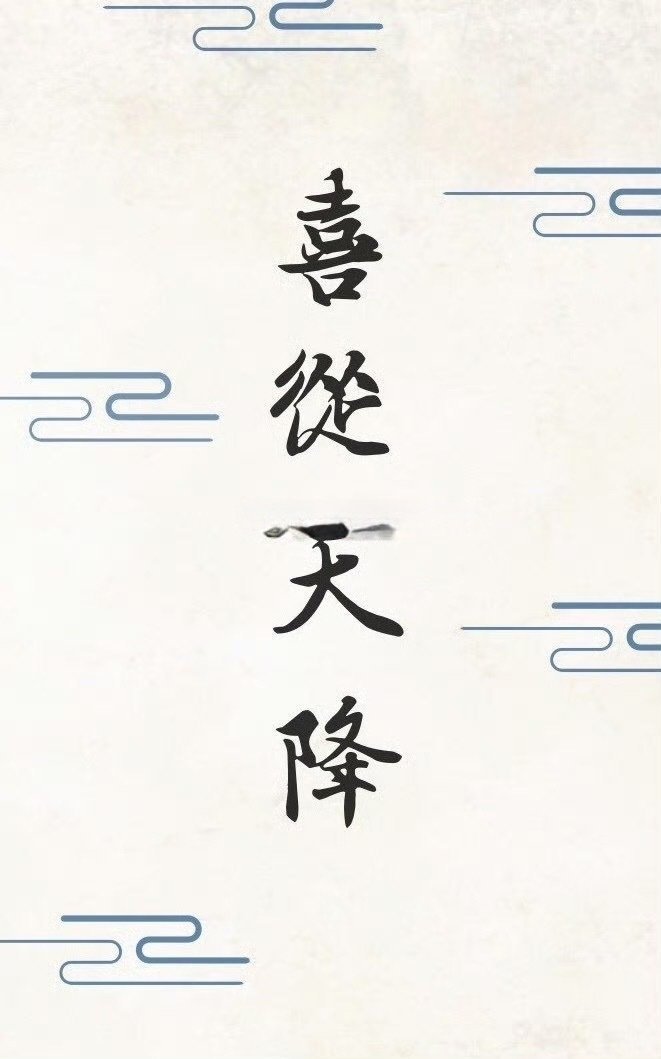 喜從天降